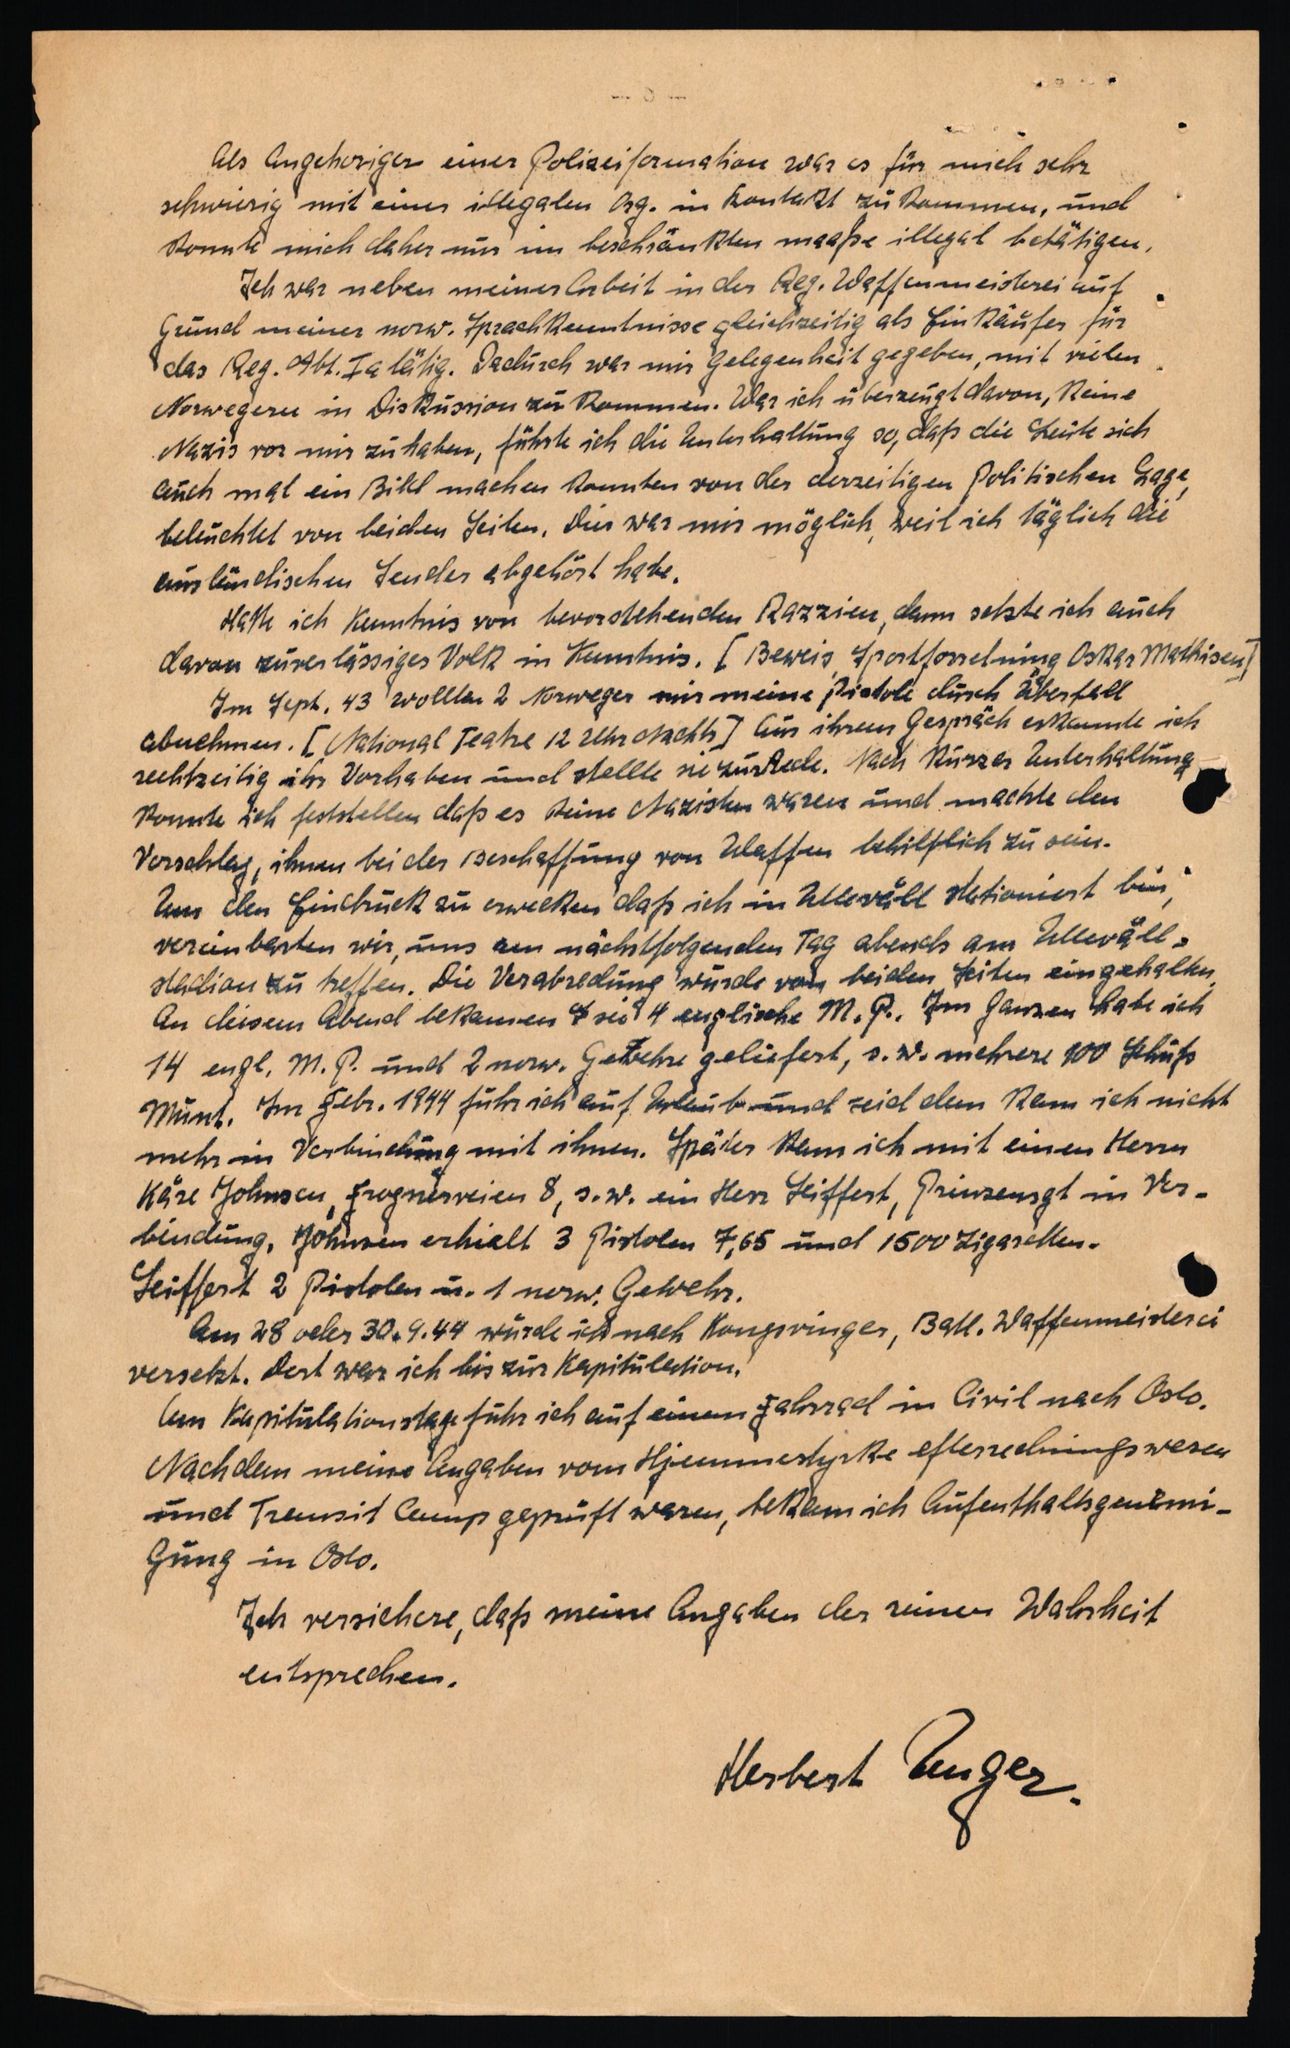 Als Angehöriger einer Polizeiformation war es für mich sehr
schwierig mit einer illegalen Org. in Kontakt zu kommen, und
konnte mich daher nur im beschränkten maaße illegal betätigen.
Ich war neben meiner Arbeit in der Reg. Waffenmeisterei auf
Grund meiner norw. Sprachkenntnisse gleichzeitig als Einkäufer für
das Reg. Abt. Ia tätig. Dadurch war mir Gelegenheit gegeben, mit vielen
Norwegern in Diskussion zu kommen. War ich überzeugt davon, keine
Nazis vor mir zu haben, führte ich die Unterhaltung so, daß die Leute sich
auch mal ein Bild machen konnten von der derzeitigen Politischen Lage,
beleuchtet von beiden Seiten. Dies war mir möglich, weil ich täglich die
ausländischen Sender abgehört habe.
Hatte ich Kenntnis von bevorstehenden Razzien, dann setzte ich auch
davon zuverlässiges Volk in Kenntnis. [Beweis, Sportforretning Oskar Mathisen]
Im Sept. 43 wollten 2 Norweger mir meine Pistole durch Überfall
abnehmen. [National Teatre 12 Uhr Nachts] Aus ihrem Gespräch erkannte ich
rechtzeitig ihr Vorhaben und stellte sie zur Rede. Nach kurzer Unterhaltung
konnte ich feststellen daß es keine Nazisten waren und machte den
Vorschlag, ihnen bei der Beschaffung von Waffen behilflich zu sein.
Um den Eindruck zu erwecken daß ich in Ullevåll stationiert bin,
vereinbarten wir, uns am nächstfolgenden Tag abends am Ullevåll-
stadion zu treffen. Die Verabredung wurde von beiden Seiten eingehalten.
An diesem Abend bekamen sie 4 englische M.P. Im Ganzen habe ich
14 engl. M.P. und 2 norw. Gewehre geliefert, s.w. mehrere 100 Schuß
Munt. Im Febr. 1944 fuhr ich auf Urlaub und zeid dem kam ich nicht
mehr in Verbindung mit ihnen. Später kam ich mit einen Herrn
Kåre Johnsen, Frognerveien 8, s.w. ein Herr Seiffert, Prinzensgt in Ver-
bindung. Johnsen erhielt 3 Pistolen 7,65 und 1500 Zigaretten.
Seiffert 2 Pistolen u. 1 norw. Gewehr.
Am 28 oder 30.9.44 wurde ich nach Kongsvinger, Batl. Waffenmeisterei
versetzt. Dort war ich bis zur Kapitulation.
Am Kapitulationstage fuhr ich auf einem Fahrrad in Civil nach Oslo.
Nachdem meine Angaben vom Hjemmestyrke efterredningswesen
und Transit Camp geprüft waren, bekam ich Aufenthaltsgenemi-
gung in Oslo.
Ich versichere, daß meine Angaben der reinen Wahrheit
entsprechen.
Herbert Unger.